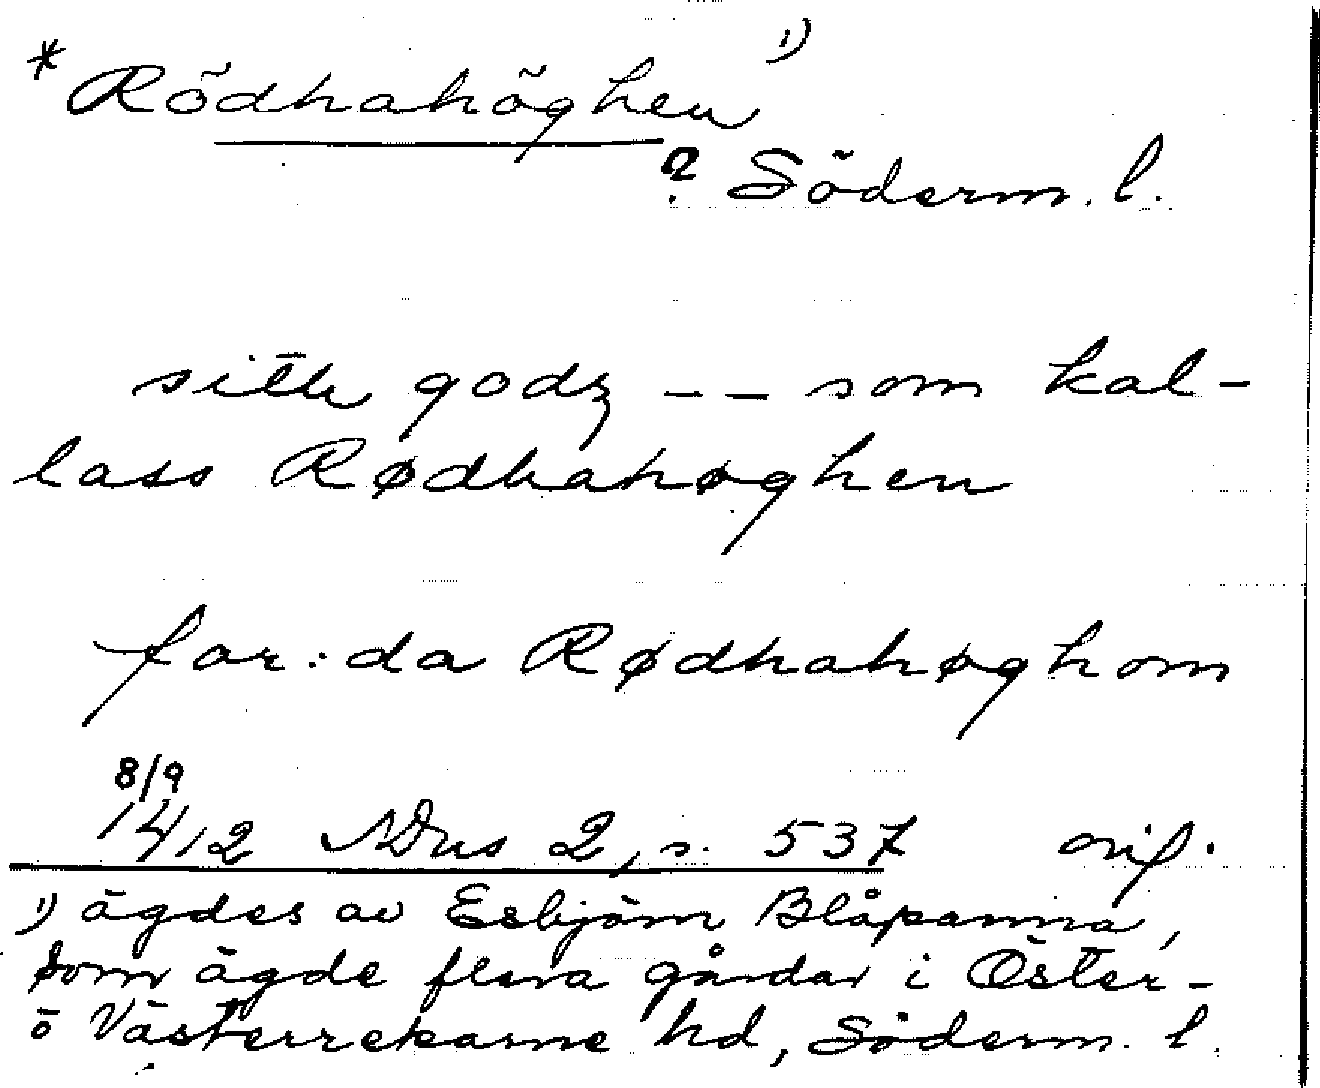 * Rödhahöghen 1)
? Söderm. l.
sitth godz -- som kal-
lass Rødhahøghen
for:da Rødhahøghom
8/9
1412 NDns 2, s. 537 orig.
1) ägdes av Esbjörn Blåpanna,
som ägde flera gårdar i Öster-
o Västerrekarne hd, Söderm. l.